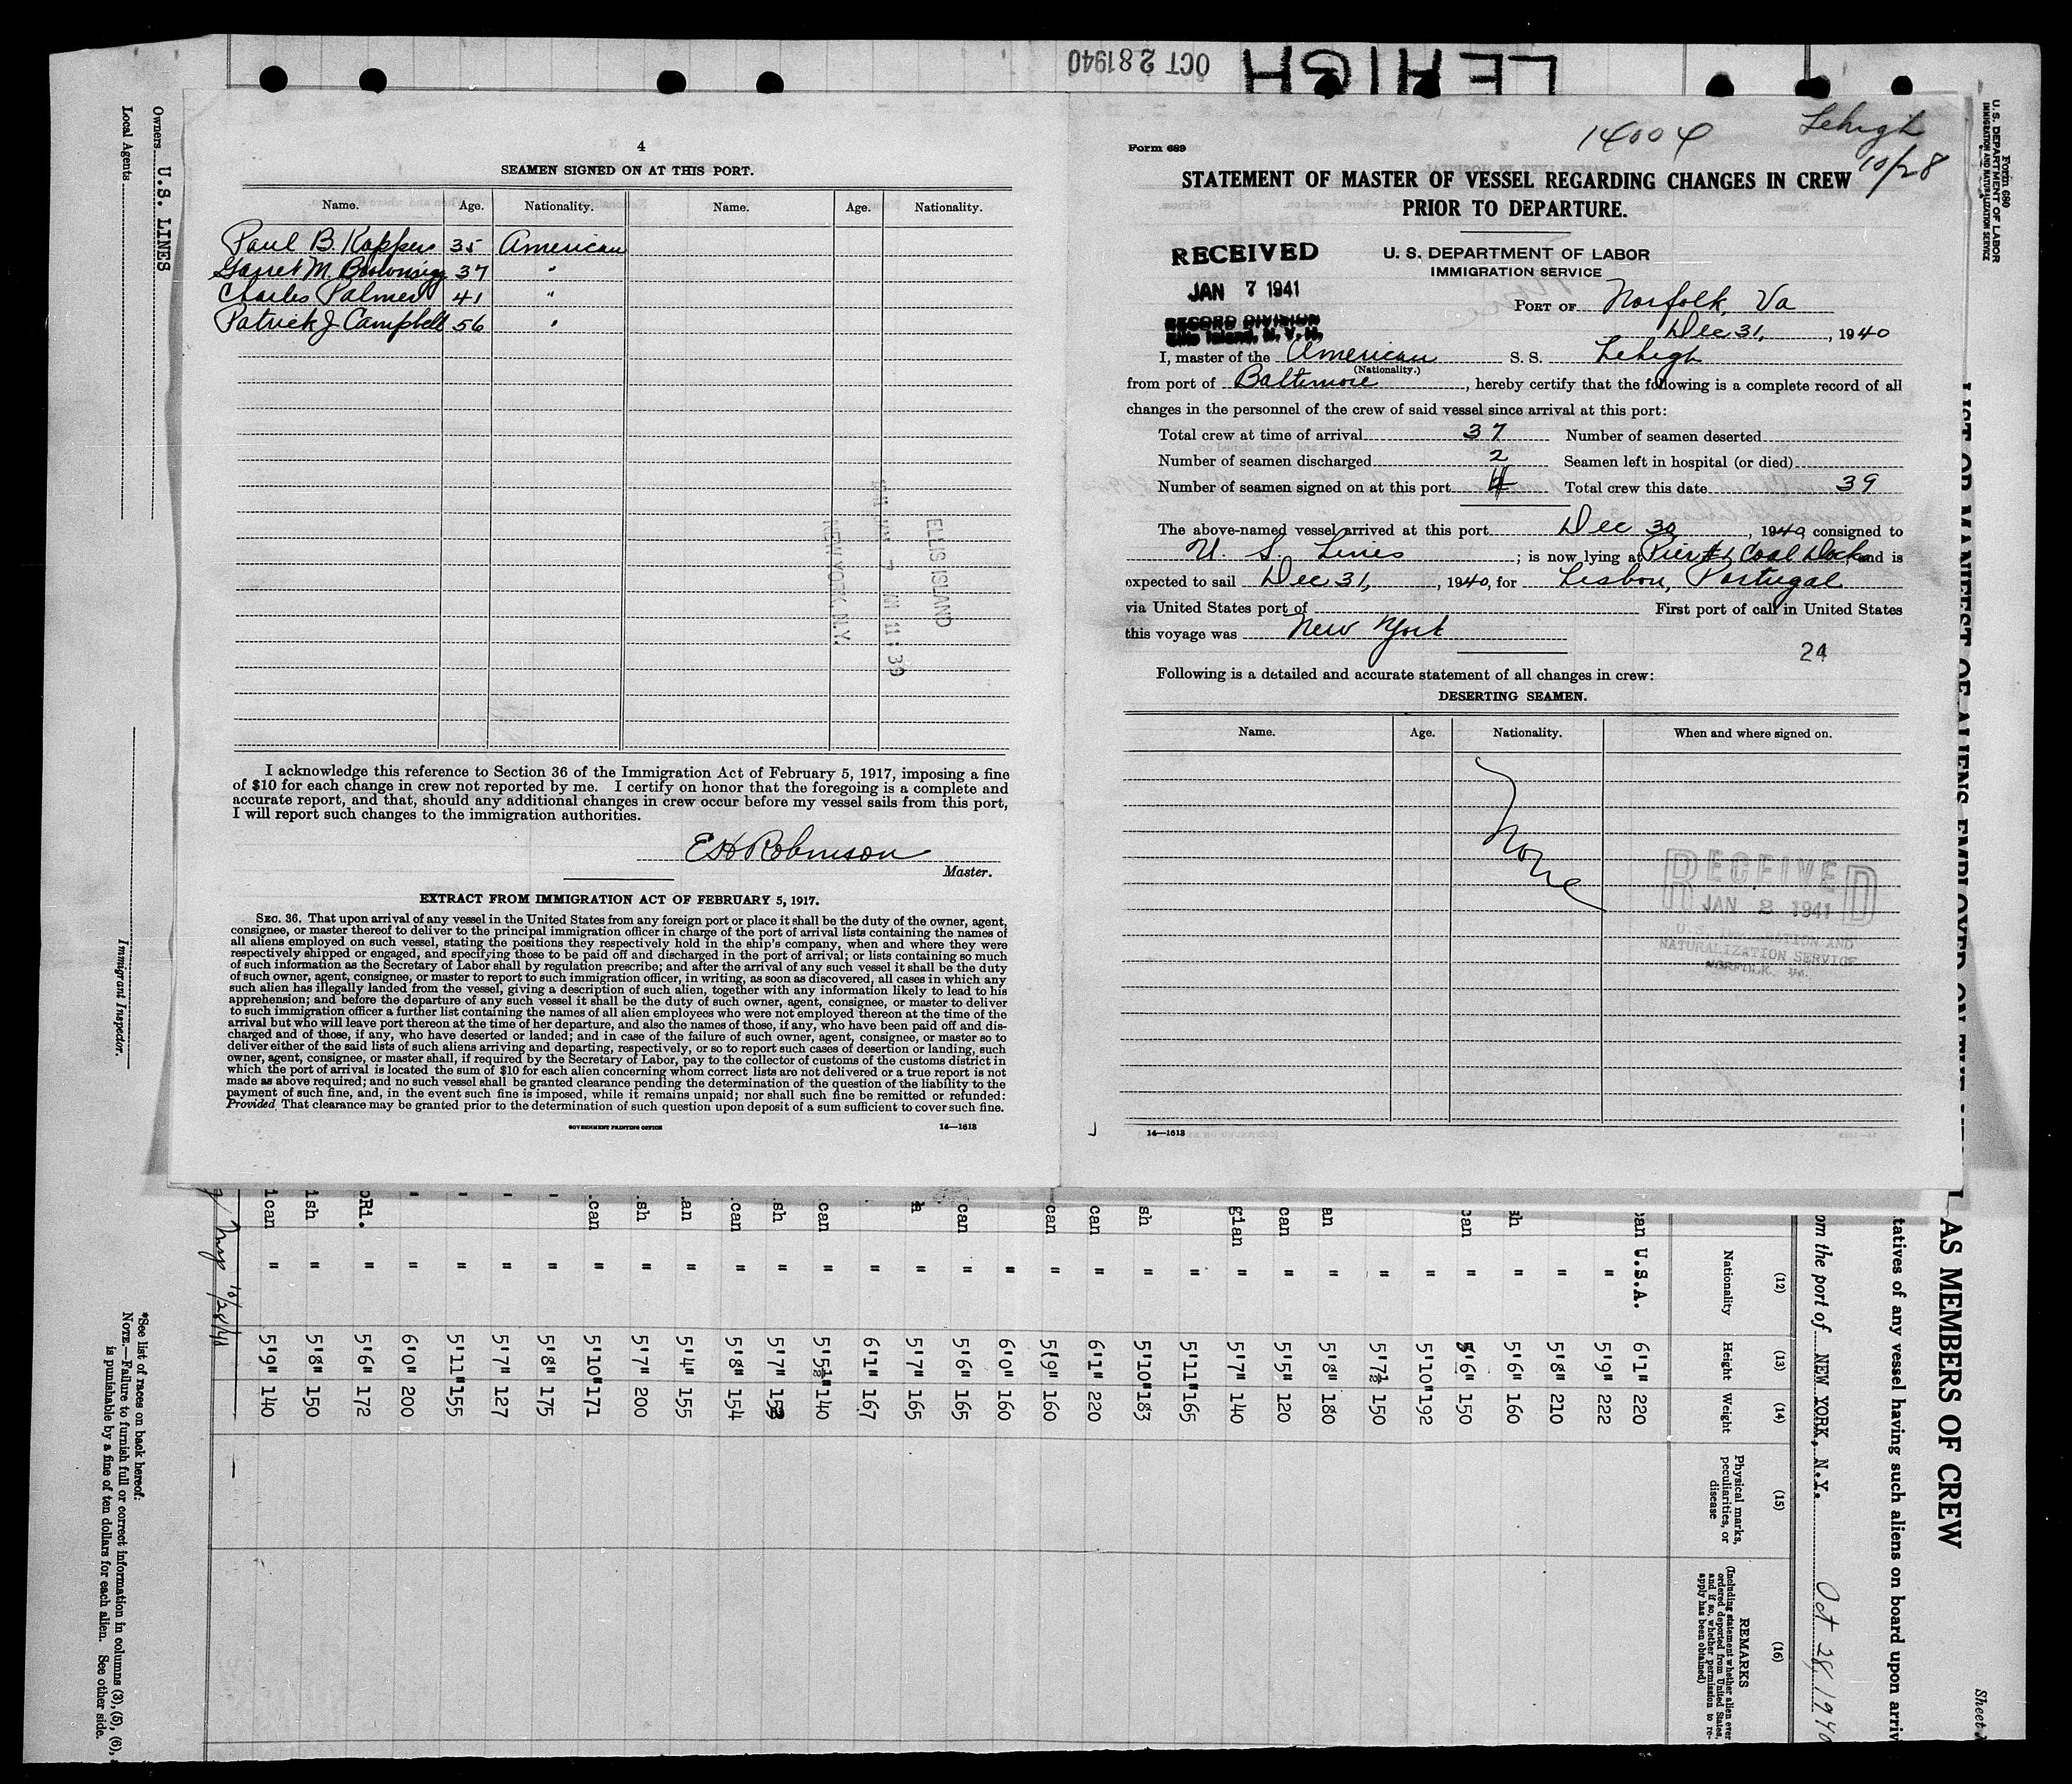 OCT 281940
LEHIGH
4
SEAMEN SIGNED ON AT THIS PORT.
Name. Age. Nationality. Name. Age. Nationality.
Paul B. Koppers 35 American
Garret M. Brownrigg 37 "
Charles Palmer 41 "
Patrick J Campbell 56 "
ELLIS ISLAND
JAN 7 AM 11:39
NEW YORK, N.Y.
I acknowledge this reference to Section 36 of the Immigration Act of February 5, 1917, imposing a fine
of $10 for each change in crew not reported by me. I certify on honor that the foregoing is a complete and
accurate report, and that, should any additional changes in crew occur before my vessel sails from this port,
I will report such changes to the immigration authorities.
E H Robinson
Master.
EXTRACT FROM IMMIGRATION ACT OF FEBRUARY 5, 1917.
SEC. 36. That upon arrival of any vessel in the United States from any foreign port or place it shall be the duty of the owner, agent,
consignee, or master thereof to deliver to the principal immigration officer in charge of the port of arrival lists containing the names of
all aliens employed on such vessel, stating the positions they respectively hold in the ship's company, when and where they were
respectively shipped or engaged, and specifying those to be paid off and discharged in the port of arrival; or lists containing so much
of such information as the Secretary of Labor shall by regulation prescribe; and after the arrival of any such vessel it shall be the duty
of such owner, agent, consignee, or master to report to such immigration officer, in writing, as soon as discovered, all cases in which any
such alien has illegally landed from the vessel, giving a description of such alien, together with any information likely to lead to his
apprehension; and before the departure of any such vessel it shall be the duty of such owner, agent, consignee, or master to deliver
to such immigration officer a further list containing the names of all alien employees who were not employed thereon at the time of the
arrival but who will leave port thereon at the time of her departure, and also the names of those, if any, who have been paid off and dis-
charged and of those, if any, who have deserted or landed; and in case of the failure of such owner, agent, consignee, or master so to
deliver either of the said lists of such aliens arriving and departing, respectively, or so to report such cases of desertion or landing, such
owner, agent, consignee, or master shall, if required by the Secretary of Labor, pay to the collector of customs of the customs district in
which the port of arrival is located the sum of $10 for each alien concerning whom correct lists are not delivered or a true report is not
made as above required; and no such vessel shall be granted clearance pending the determination of the question of the liability to the
payment of such fine, and, in the event such fine is imposed, while it remains unpaid; nor shall such fine be remitted or refunded:
Provided That clearance may be granted prior to the determination of such question upon deposit of a sum sufficient to cover such fine.
GOVERNMENT PRINTING OFFICE 14—1613
14004 Lehigh
10/28
Form 689
STATEMENT OF MASTER OF VESSEL REGARDING CHANGES IN CREW
PRIOR TO DEPARTURE.
RECEIVED
JAN 7 1941
RECORD DIVISION
Ellis Island, N. Y. H.
U. S. DEPARTMENT OF LABOR
IMMIGRATION SERVICE
PORT OF Norfolk, Va
Dec 31, , 1940
I, master of the American S. S. Lehigh
(Nationality.)
from port of Baltimore , hereby certify that the following is a complete record of all
changes in the personnel of the crew of said vessel since arrival at this port:
Total crew at time of arrival 37 Number of seamen deserted
Number of seamen discharged 2 Seamen left in hospital (or died)
Number of seamen signed on at this port 4 Total crew this date 39
The above-named vessel arrived at this port Dec 30 , 1940, consigned to
U. S. Lines ; is now lying at Pier #1 Coal Dock, and is
expected to sail Dec 31, , 1940, for Lisbon, Portugal
via United States port of First port of call in United States
this voyage was New York
24
Following is a detailed and accurate statement of all changes in crew:
DESERTING SEAMEN.
Name. Age. Nationality. When and where signed on.
None
RECEIVED
JAN 2 1941
U. S. IMMIGRATION AND
NATURALIZATION SERVICE
NORFOLK, VA.
14—1613
Form 680
U.S. DEPARTMENT OF LABOR
IMMIGRATION AND NATURALIZATION SERVICE
LIST OR MANIFEST OF ALIENS EMPLOYED ON THE
AS MEMBERS OF CREW
Sheet
tatives of any vessel having such aliens on board upon arriv
om the port of NEW YORK, N.Y. Oct 28, 1940
(12) (13) (14) (15) (16)
Nationality Height Weight Physical marks, peculiarities, or disease REMARKS
(Including statement whether alien ever
ordered deported from United States,
and if so, whether permission to re-
apply has been obtained)
can U.S.A. 6'1" 220
" 5'9" 222
" 5'8" 210
sh " 5'6" 160
can " 5'6" 150
" 5'10" 192
" 5'7½ 150
an " 5'8" 180
can " 5'5" 120
gian " 5'7" 140
" 5'11" 165
sh " 5'10" 183
can " 6'1" 220
can " 5'9" 160
" 6'0" 160
can " 5'6" 165
h " 5'7" 165
" 6'1" 167
can " 5'5½" 140
sh " 5'7"
can " 5'8" 154
an " 5'4" 155
sh " 5'7" 200
can " 5'10" 171
" 5'8" 175
" 5'7" 127
" 5'11" 155
" 6'0" 200
oRi. " 5'6" 172
ish " 5'8" 150
ican " 5'9" 140
10/28/41
Owners U.S. LINES
Local Agents
Immigrant Inspector.
*See list of races on back hereof.
NOTE.—Failure to furnish full or correct information in columns (3), (5), (6),
is punishable by a fine of ten dollars for each alien. See other side.